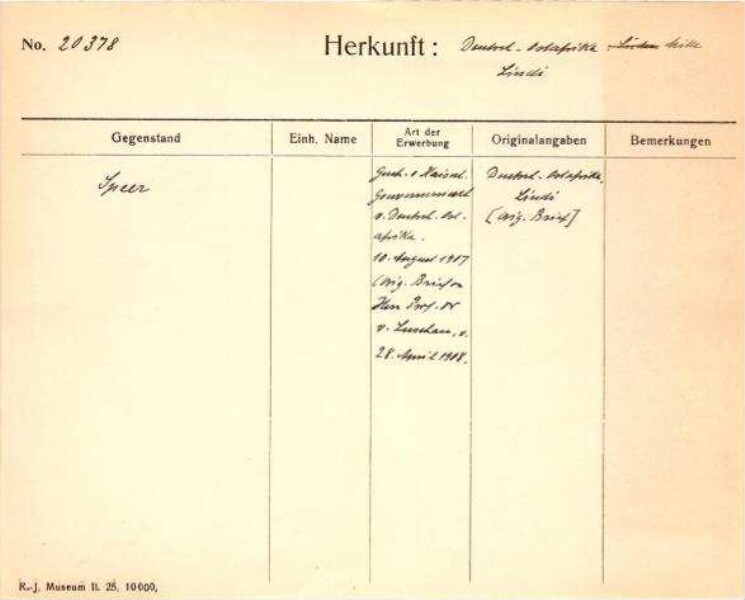 No. 20378
Herkunft: Deutsch-Ostafrika
Lindi
Gegenstand
Einh. Name
Art der Erwerbung
Originalangaben
Bemerkungen
Speer
Gesch. v Kaiserl.
Gouvernement
v. Deutsch. Ost-
afrika.
10. August 1907
(Orig. Brief an
Herr Prof. Dr
v. Luschan, v.
28. April 1908.
Deutsch. Ostafrika,
Lindi
[Orig. Brief]
R.-J. Museum II. 25, 10000,